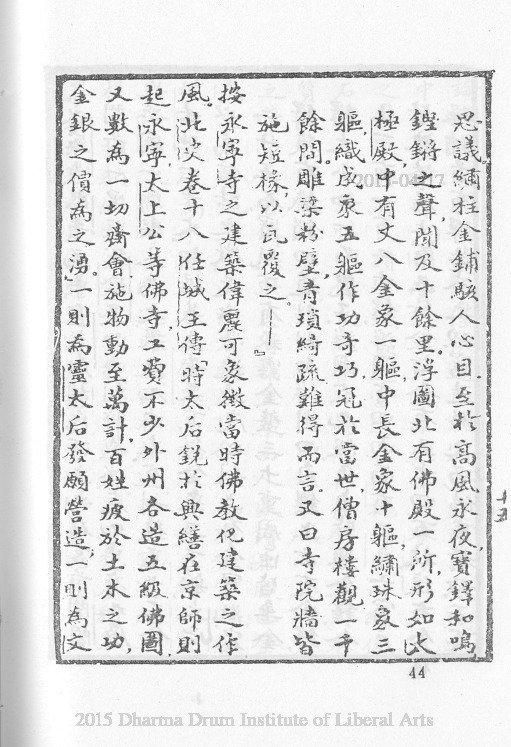 思議繡柱金鋪駭人心目至於高風永夜，寶鐸和鳴
鏗鏘之聲，聞及十餘里，浮圖北有佛殿一所，形如太
極殿，中有丈八金象一軀，中長金象十軀，繡珠象三
軀，織成象五軀，作功奇巧，冠於當世，僧房樓觀一千
餘間，雕梁粉壁，青瑣綺疏，難得而言。又曰寺院牆皆
施短椽，以瓦覆之。——』
按永寧寺之建築偉麗可象徵當時佛教化建築之作
風。北史卷十八任城王傳，時太后銳於興繕，在京師則
起永寧太上公等佛寺，工費不少，外州各造五級佛圖
又數為一切齋會，施物動至萬計，百姓疲於土木之功，
金銀之價為之湧。一則為靈太后發願營造，一則為文
十五
44
2015 Dharma Drum Institute of Liberal Arts